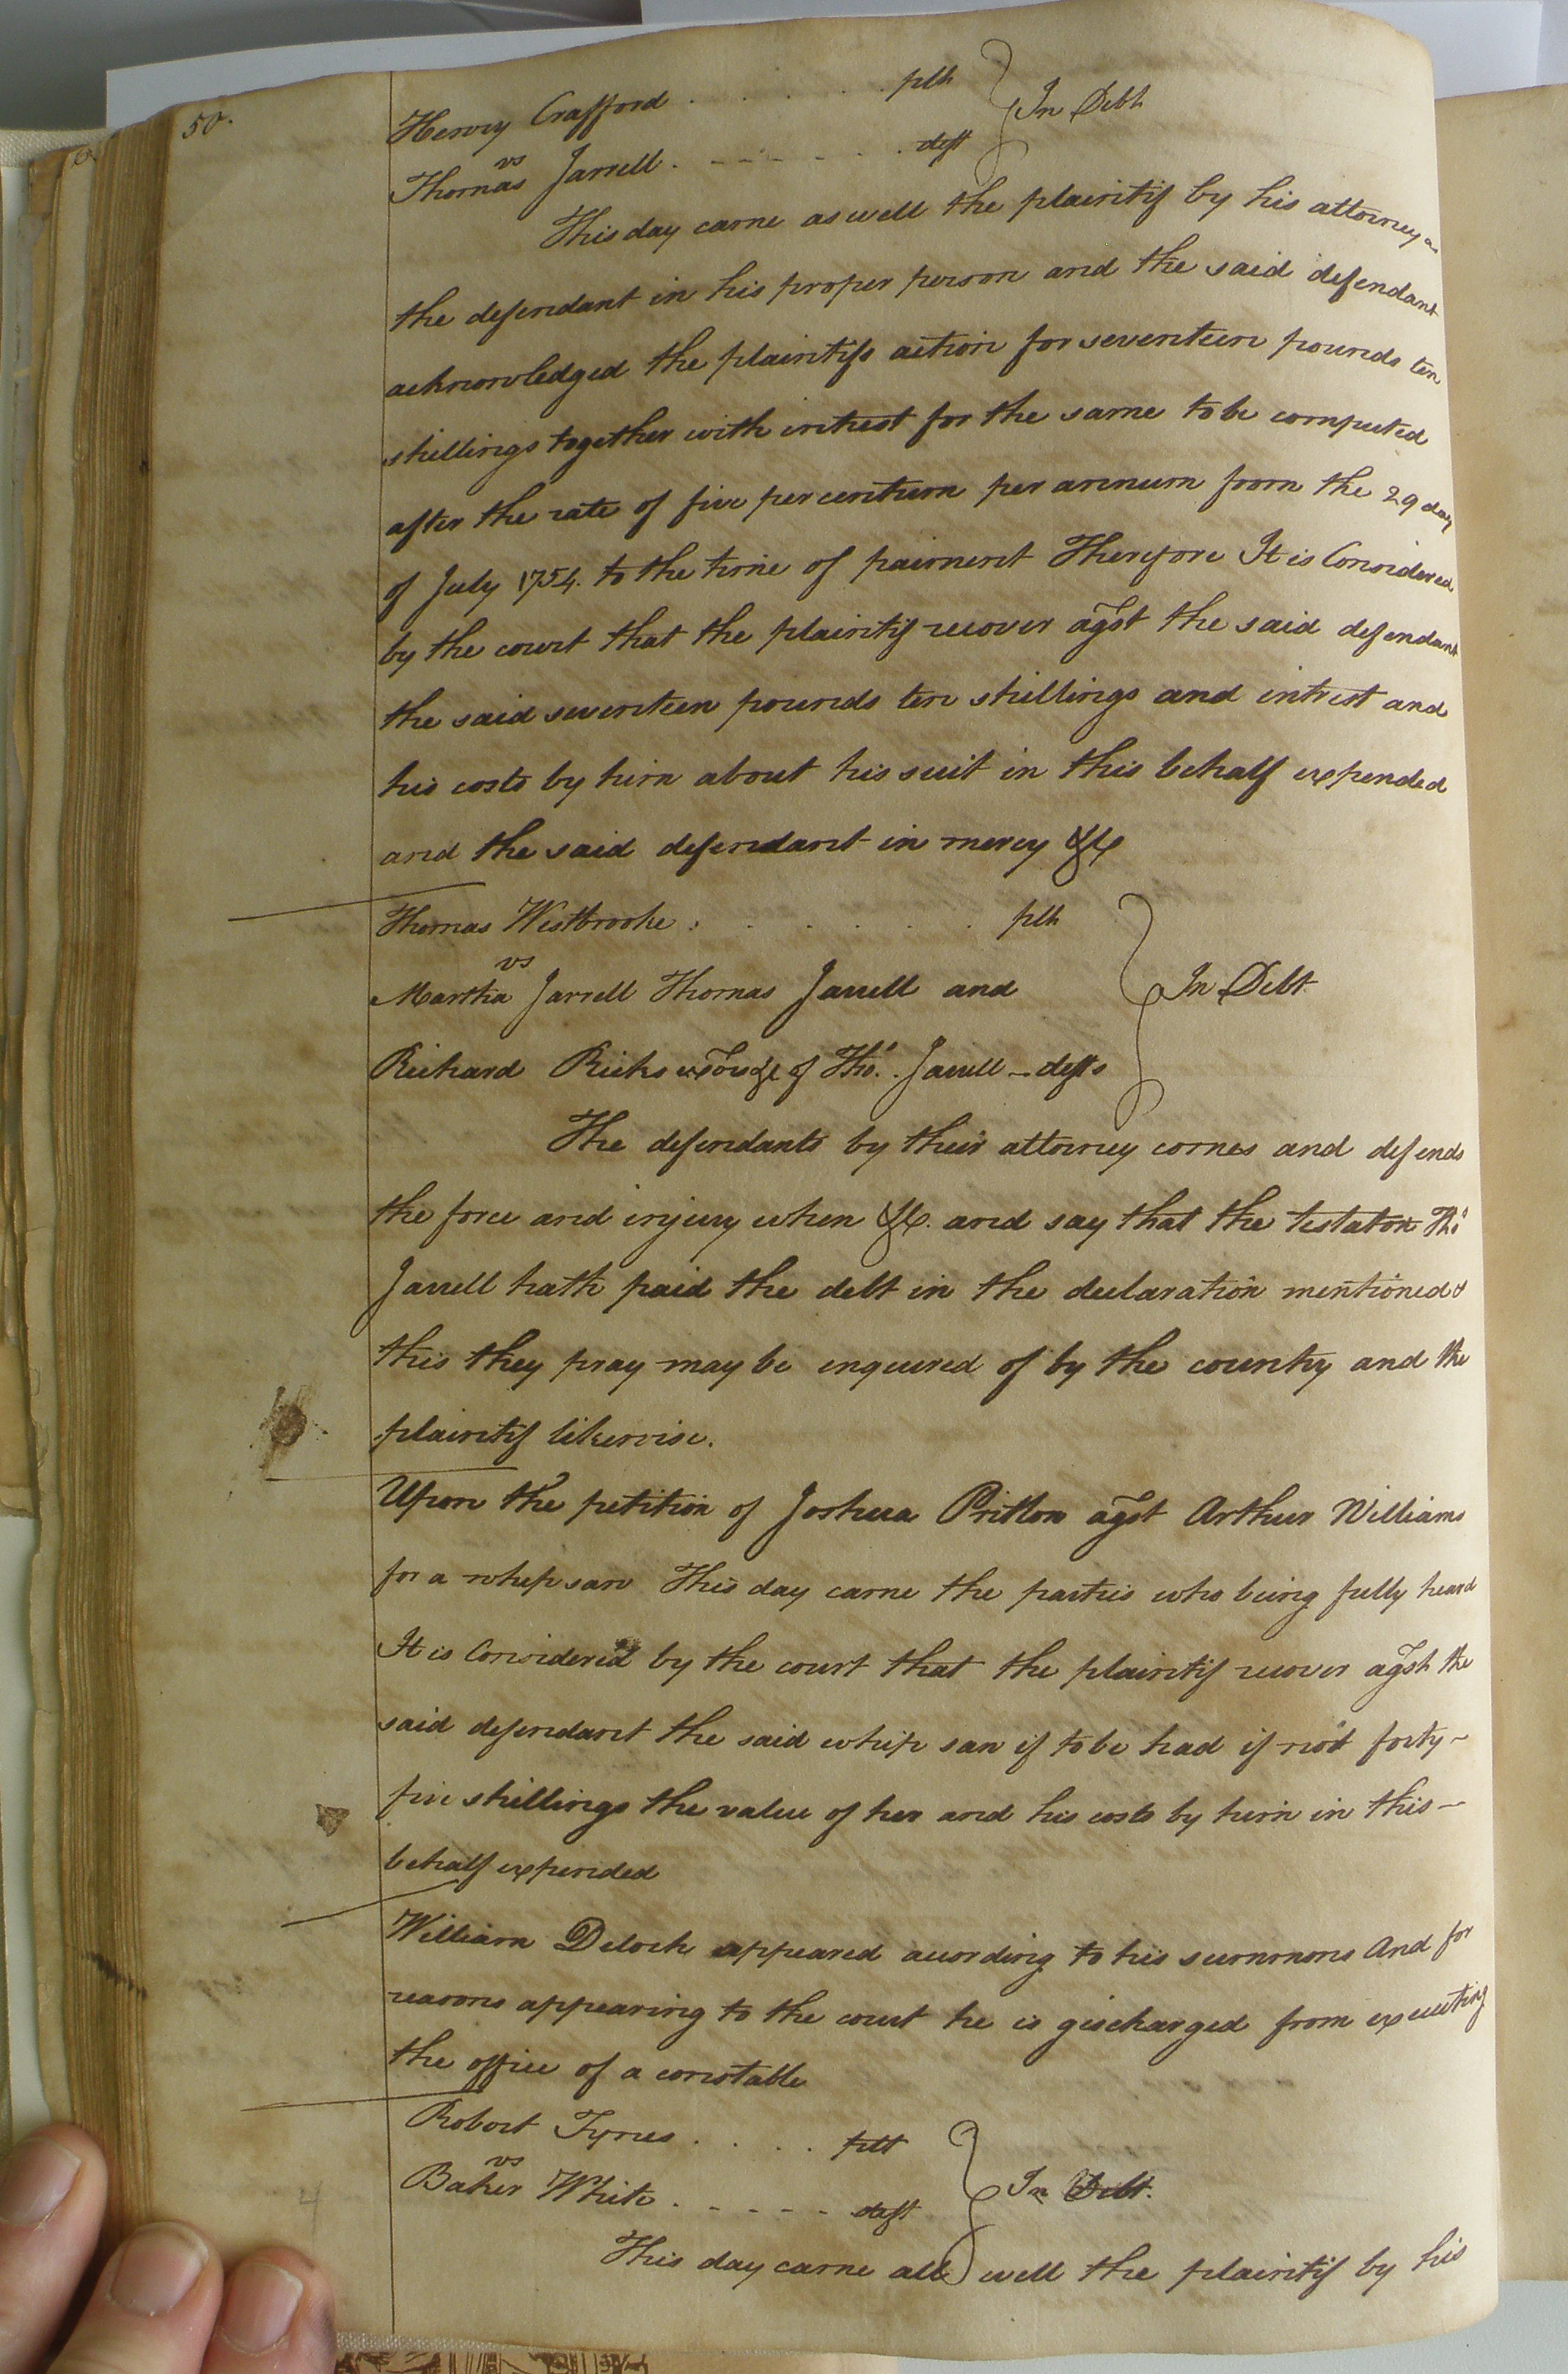 50.
Henry Crafford . . . . . plt
vs
Thomas Jarrell . - - - . . deft
In Debt
This day came as well the plaintif by his attorney as
the defendant in his proper person and the said defendant
acknowledged the plaintifs action for seventeen pounds ten
shillings together with intrest for the same to be computed
after the rate of five per centum per annum from the 29 day
of July 1754. to the time of paiment Therefore It is Considered
by the court that the plaintif recover agst the said defendant
the said seventeen pounds ten shillings and intrest and
his costs by him about his suit in this behalf expended
and the said defendant in mercy &c
Thomas Westbrooke . . . . . . plt
vs
Martha Jarrell Thomas Jarrell and
In Debt
Richard Ricks of Tho. Jarrell - defts
The defendants by their attorney comes and defends
the force and injury when &c. and say that the testator Tho
Jarrell hath paid the debt in the declaration mentioned &
this they pray may be enquired of by the country and the
plaintif likewise.
Upon the petition of Joshua Pritlon agst Arthur Williams
for a whip saw This day came the parties who being fully heard
It is Considered by the court that the plaintif recover agst the
said defendant the said whip saw if to be had if not forty-
five shillings the value of her and his costs by him in this-
behalf expended
William Deloch appeared acording to his summons And for
reasons appearing to the court he is gischarged from executing
the office of a constable
Robert Tynes . . . . plt
vs
Baker White . - - - - deft
In Debt.
This day came all well the plaintif by his